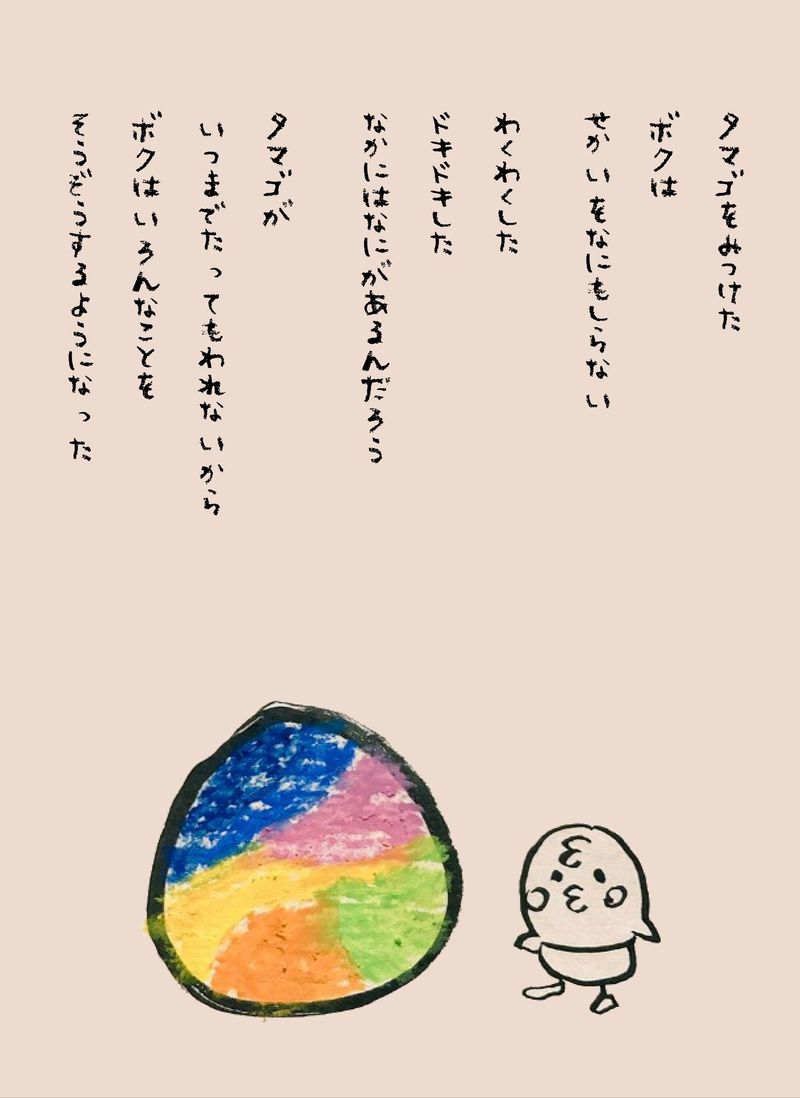 タマゴをみつけた
ボクは
せかいをなにもしらない
わくわくした
ドキドキした
なかにはなにがあるんだろう
タマゴが
いつまでたってもわれないから
ボクはいろんなことを
そうぞうするようになった